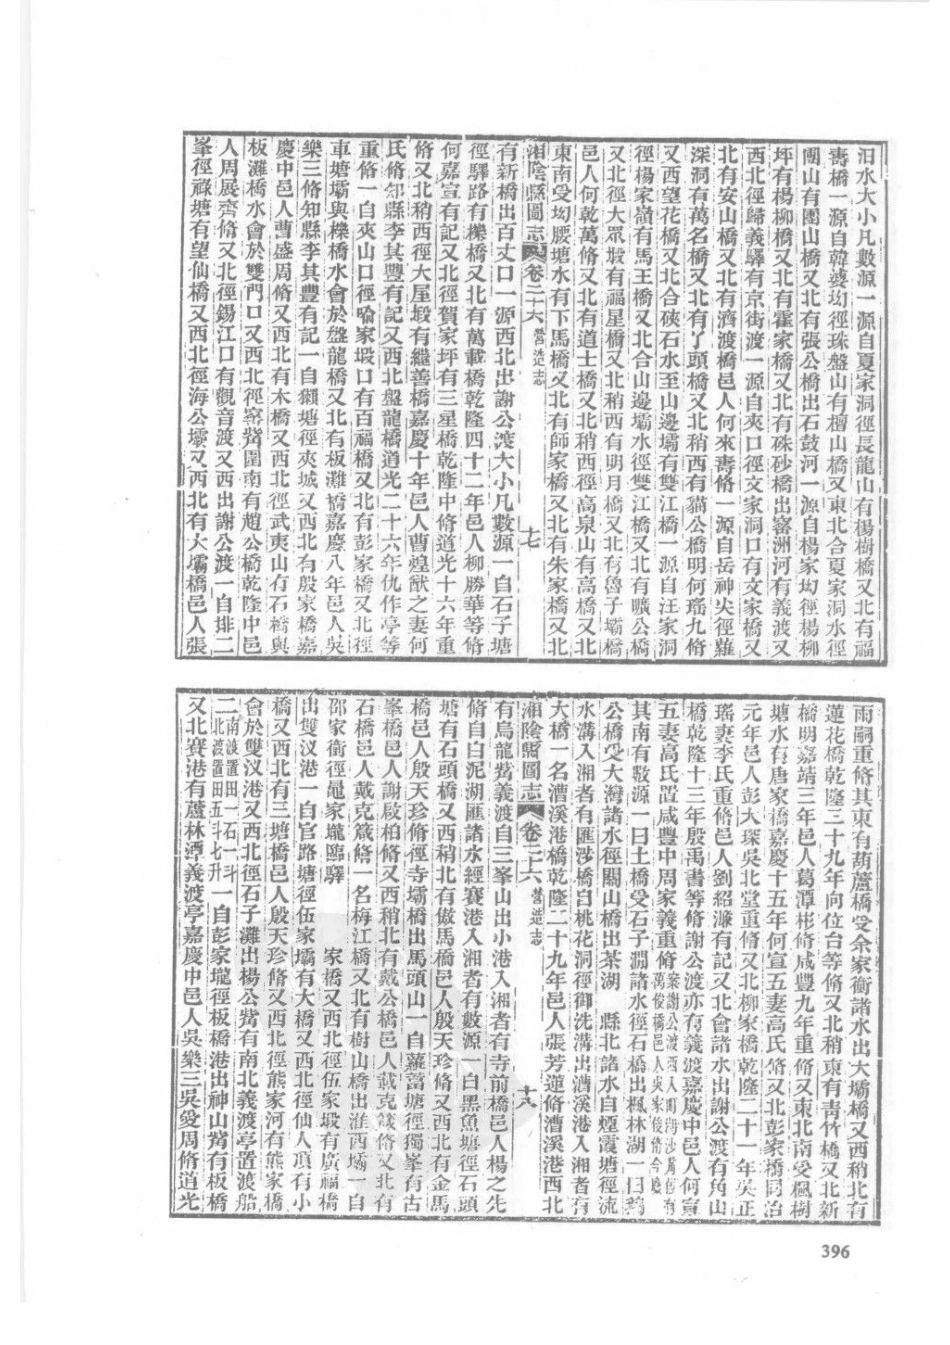 汨水大小凡數源一源自夏家洞徑長龍山有楊樹橋又北有福
壽橋一源自韓婆坳徑珠盤山有檀山橋又東北合夏家洞水徑
團山有團山橋又北有張公橋出石鼓河一源自楊家坳徑楊柳
坪有楊柳橋又北有霍家橋又北有硃砂橋出窰洲河有義渡又
西北徑歸義驛有京街渡一源自夾口徑文家洞口有文家橋又
北有安山橋又北有濟渡橋邑人何來壽脩一源自岳神尖徑蘿
深洞有萬名橋又北有了頭橋又北稍西有貓公橋明何瑤九脩
又西望花橋又北合硤石水至山邊壩有雙江橋一源自汪家洞
徑楊家嶺有馬王橋又北合山邊壩水徑雙江橋又北有曠公橋
又北徑大眾塅有福星橋又北稍西有明月橋又北有魯子壩橋
邑人何乾萬脩又北有道士橋又北稍西徑高泉山有高橋又北
東南受坳腰塘水有下馬橋又北有師家橋又北有朱家橋又北
湘陰縣圖志 卷二十六 營造志 十七
有新橋出百丈口一源西北出謝公渡大小凡數源一自石子塘
徑驛路有櫟橋又北有萬載橋乾隆四十二年邑人柳勝華等脩
何嘉宣有記又北徑賀家坪有三星橋乾隆中脩道光十六年重
脩又北稍西徑大屋塅有繼善橋嘉慶十年邑人曹煌猷之妻何
氏脩知縣李其豐有記又西北盤龍橋道光二十六年仇作亭等
重脩一自夾山口徑喻家塅口有百福橋又北有彭家橋又北徑
車塘壩與櫟橋水會於盤龍橋又北有板灘橋嘉慶八年邑人吳
樂三脩知縣李其豐有記一自獺塘徑夾城又西北有殷家橋嘉
慶中邑人曹盛周脩又西北有木橋又西北徑武夷山有石橋與
板灘橋水會於雙門口又西北徑窰觜圍南有趙公橋乾隆中邑
人周展齊脩又北徑錫江口有觀音渡又西出謝公渡一自排二
峯徑祿塘有望仙橋又西北徑海公壩又西北有大壩橋邑人張
雨嗣重脩其東有葫蘆橋受余家衝諸水出大壩橋又西稍北有
蓮花橋乾隆三十九年向位台等脩又北稍東有靑竹橋又北新
橋明嘉靖三年邑人葛潭彬脩咸豐九年重脩又東北南受楓樹
塘水有唐家橋嘉慶十五年何宣五妻高氏脩又北彭家橋同治
元年邑人彭大琛吳北堂重脩又北柳家橋乾隆二十一年吳正
瑤妻李氏重脩邑人劉紹濂有記又北會諸水出謝公渡有角山
橋乾隆十三年殷禹書等脩謝公渡亦有義渡嘉慶中邑人何宣
五妻高氏置咸豐中周家義重脩
其南有數源一曰土橋受石子澗諸水徑石橋出楓林湖一曰
公橋受大灣諸水徑關山橋出茶湖 縣北諸水自煙霞塘徑流
水溝入湘者有匯涉橋自桃花洞徑御洗溝出漕溪港入湘者有
大橋一名漕溪港橋乾隆二十九年邑人張芳蓮脩漕溪港西北
湘陰縣圖志 卷二十六 營造志 十八
有烏龍觜義渡自三峯山出小港入湘者有寺前橋邑人楊之先
脩自白泥湖匯諸水經賽港入湘者有數源一自黑魚塘徑石頭
塘有石頭橋又西稍北有傲馬橋邑人殷天珍脩又西北有金馬
橋邑人殷天珍脩徑寺壩橋出馬頭山一自蘿蒿塘徑獨峯有古
峯橋邑人謝啟柏脩又西稍北有戴公橋邑人戴克箴脩又北有
石橋邑人戴克箴脩一名梅江橋又北有樹山橋出淮西壩一自
邵家衝徑鼂家壠臨驛 家橋又西北徑伍家塅有廣福橋
出雙汊港一自官路塘徑伍家壩有大橋又西北徑仙人頂有小
橋又西北有三塘橋邑人殷天珍脩又西北徑熊家河有熊家橋
會於雙汊港又西北徑石子灘出楊公觜有南北義渡亭置渡船
二 南渡置田一石一斗北渡置田五斗七升 一自彭家壠徑板橋港出神山觜有板橋
又北賽港有蘆林潭義渡亭嘉慶中邑人吳樂三吳愛周脩道光
396